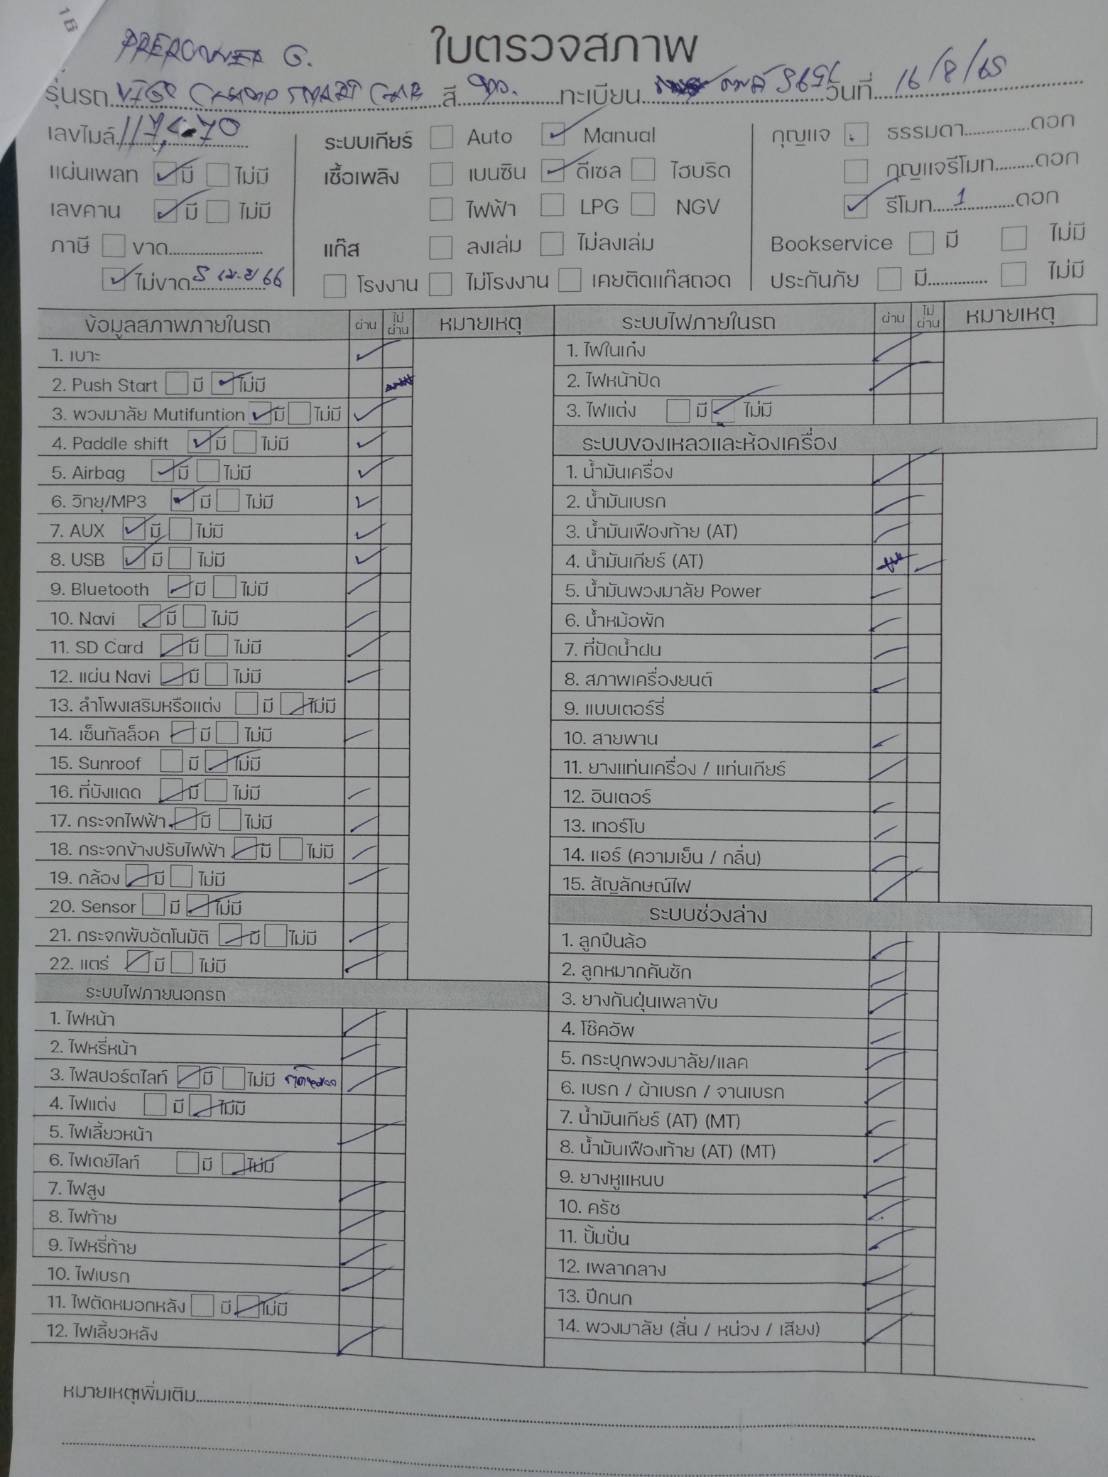 1B
PRERUNNER G.
ใบตรวจสภาพ
รุ่นรถ VIGO CHAMP SMART CAB สี ทะเบียน วันที่ 16/8/65
เลขไมล์ ระบบเกียร์ Auto ✓ Manual กุญแจ ธรรมดา ดอก
แผ่นเพลท ✓ มี ไม่มี เชื้อเพลิง เบนซิน ✓ ดีเซล ไฮบริด กุญแจรีโมท ดอก
เลขคาน ✓ มี ไม่มี ไฟฟ้า LPG NGV ✓ รีโมท 1 ดอก
ภาษี ขาด แก๊ส ลงเล่ม ไม่ลงเล่ม Bookservice มี ไม่มี
✓ ไม่ขาด 5 เม.ย 66 โรงงาน ไม่โรงงาน เคยติดแก๊สถอด ประกันภัย มี ไม่มี
ข้อมูลสภาพภายในรถ ผ่าน ไม่ผ่าน หมายเหตุ
1. เบาะ ✓
2. Push Start มี ✓ ไม่มี
3. พวงมาลัย Mutifuntion ✓ มี ไม่มี ✓
4. Paddle shift ✓ มี ไม่มี ✓
5. Airbag ✓ มี ไม่มี ✓
6. วิทยุ/MP3 ✓ มี ไม่มี ✓
7. AUX ✓ มี ไม่มี ✓
8. USB ✓ มี ไม่มี ✓
9. Bluetooth ✓ มี ไม่มี ✓
10. Navi ✓ มี ไม่มี ✓
11. SD Card ✓ มี ไม่มี ✓
12. แผ่น Navi ✓ มี ไม่มี ✓
13. ลำโพงเสริมหรือแต่ง มี ✓ ไม่มี
14. เซ็นทัลล็อค ✓ มี ไม่มี ✓
15. Sunroof มี ✓ ไม่มี
16. ที่บังแดด ✓ มี ไม่มี ✓
17. กระจกไฟฟ้า ✓ มี ไม่มี ✓
18. กระจกข้างปรับไฟฟ้า ✓ มี ไม่มี ✓
19. กล้อง ✓ มี ไม่มี ✓
20. Sensor มี ✓ ไม่มี
21. กระจกพับอัตโนมัติ ✓ มี ไม่มี ✓
22. แตร่ ✓ มี ไม่มี ✓
ระบบไฟภายนอกรถ
1. ไฟหน้า ✓
2. ไฟหรี่หน้า ✓
3. ไฟสปอร์ตไลท์ ✓ มี ไม่มี ✓
4. ไฟแต่ง มี ✓ ไม่มี
5. ไฟเลี้ยวหน้า ✓
6. ไฟเดย์ไลท์ มี ✓ ไม่มี
7. ไฟสูง ✓
8. ไฟท้าย ✓
9. ไฟหรี่ท้าย ✓
10. ไฟเบรก ✓
11. ไฟตัดหมอกหลัง มี ✓ ไม่มี
12. ไฟเลี้ยวหลัง ✓
ระบบไฟภายในรถ ผ่าน ไม่ผ่าน หมายเหตุ
1. ไฟในเก๋ง ✓
2. ไฟหน้าปัด ✓
3. ไฟแต่ง มี ✓ ไม่มี
ระบบของเหลวและห้องเครื่อง
1. น้ำมันเครื่อง ✓
2. น้ำมันเบรก ✓
3. น้ำมันเฟืองท้าย (AT) ✓
4. น้ำมันเกียร์ (AT) ✓
5. น้ำมันพวงมาลัย Power ✓
6. น้ำหม้อพัก ✓
7. ที่ปัดน้ำฝน ✓
8. สภาพเครื่องยนต์ ✓
9. แบบเตอร์รี่
10. สายพาน ✓
11. ยางแท่นเครื่อง / แท่นเกียร์ ✓
12. อินเตอร์ ✓
13. เทอร์โบ ✓
14. แอร์ (ความเย็น / กลิ่น) ✓
15. สัญลักษณ์ไฟ ✓
ระบบช่วงล่าง
1. ลูกปืนล้อ ✓
2. ลูกหมากคันชัก ✓
3. ยางกันฝุ่นเพลาขับ ✓
4. โช๊คอัพ ✓
5. กระบุกพวงมาลัย/แลค ✓
6. เบรก / ผ้าเบรก / จานเบรก ✓
7. น้ำมันเกียร์ (AT) (MT) ✓
8. น้ำมันเฟืองท้าย (AT) (MT) ✓
9. ยางหูแหนบ ✓
10. คลัช ✓
11. ปั้มปั่น ✓
12. เพลากลาง ✓
13. ปีกนก ✓
14. พวงมาลัย (สั่น / หน่วง / เสียง) ✓
หมายเหตุเพิ่มเติม